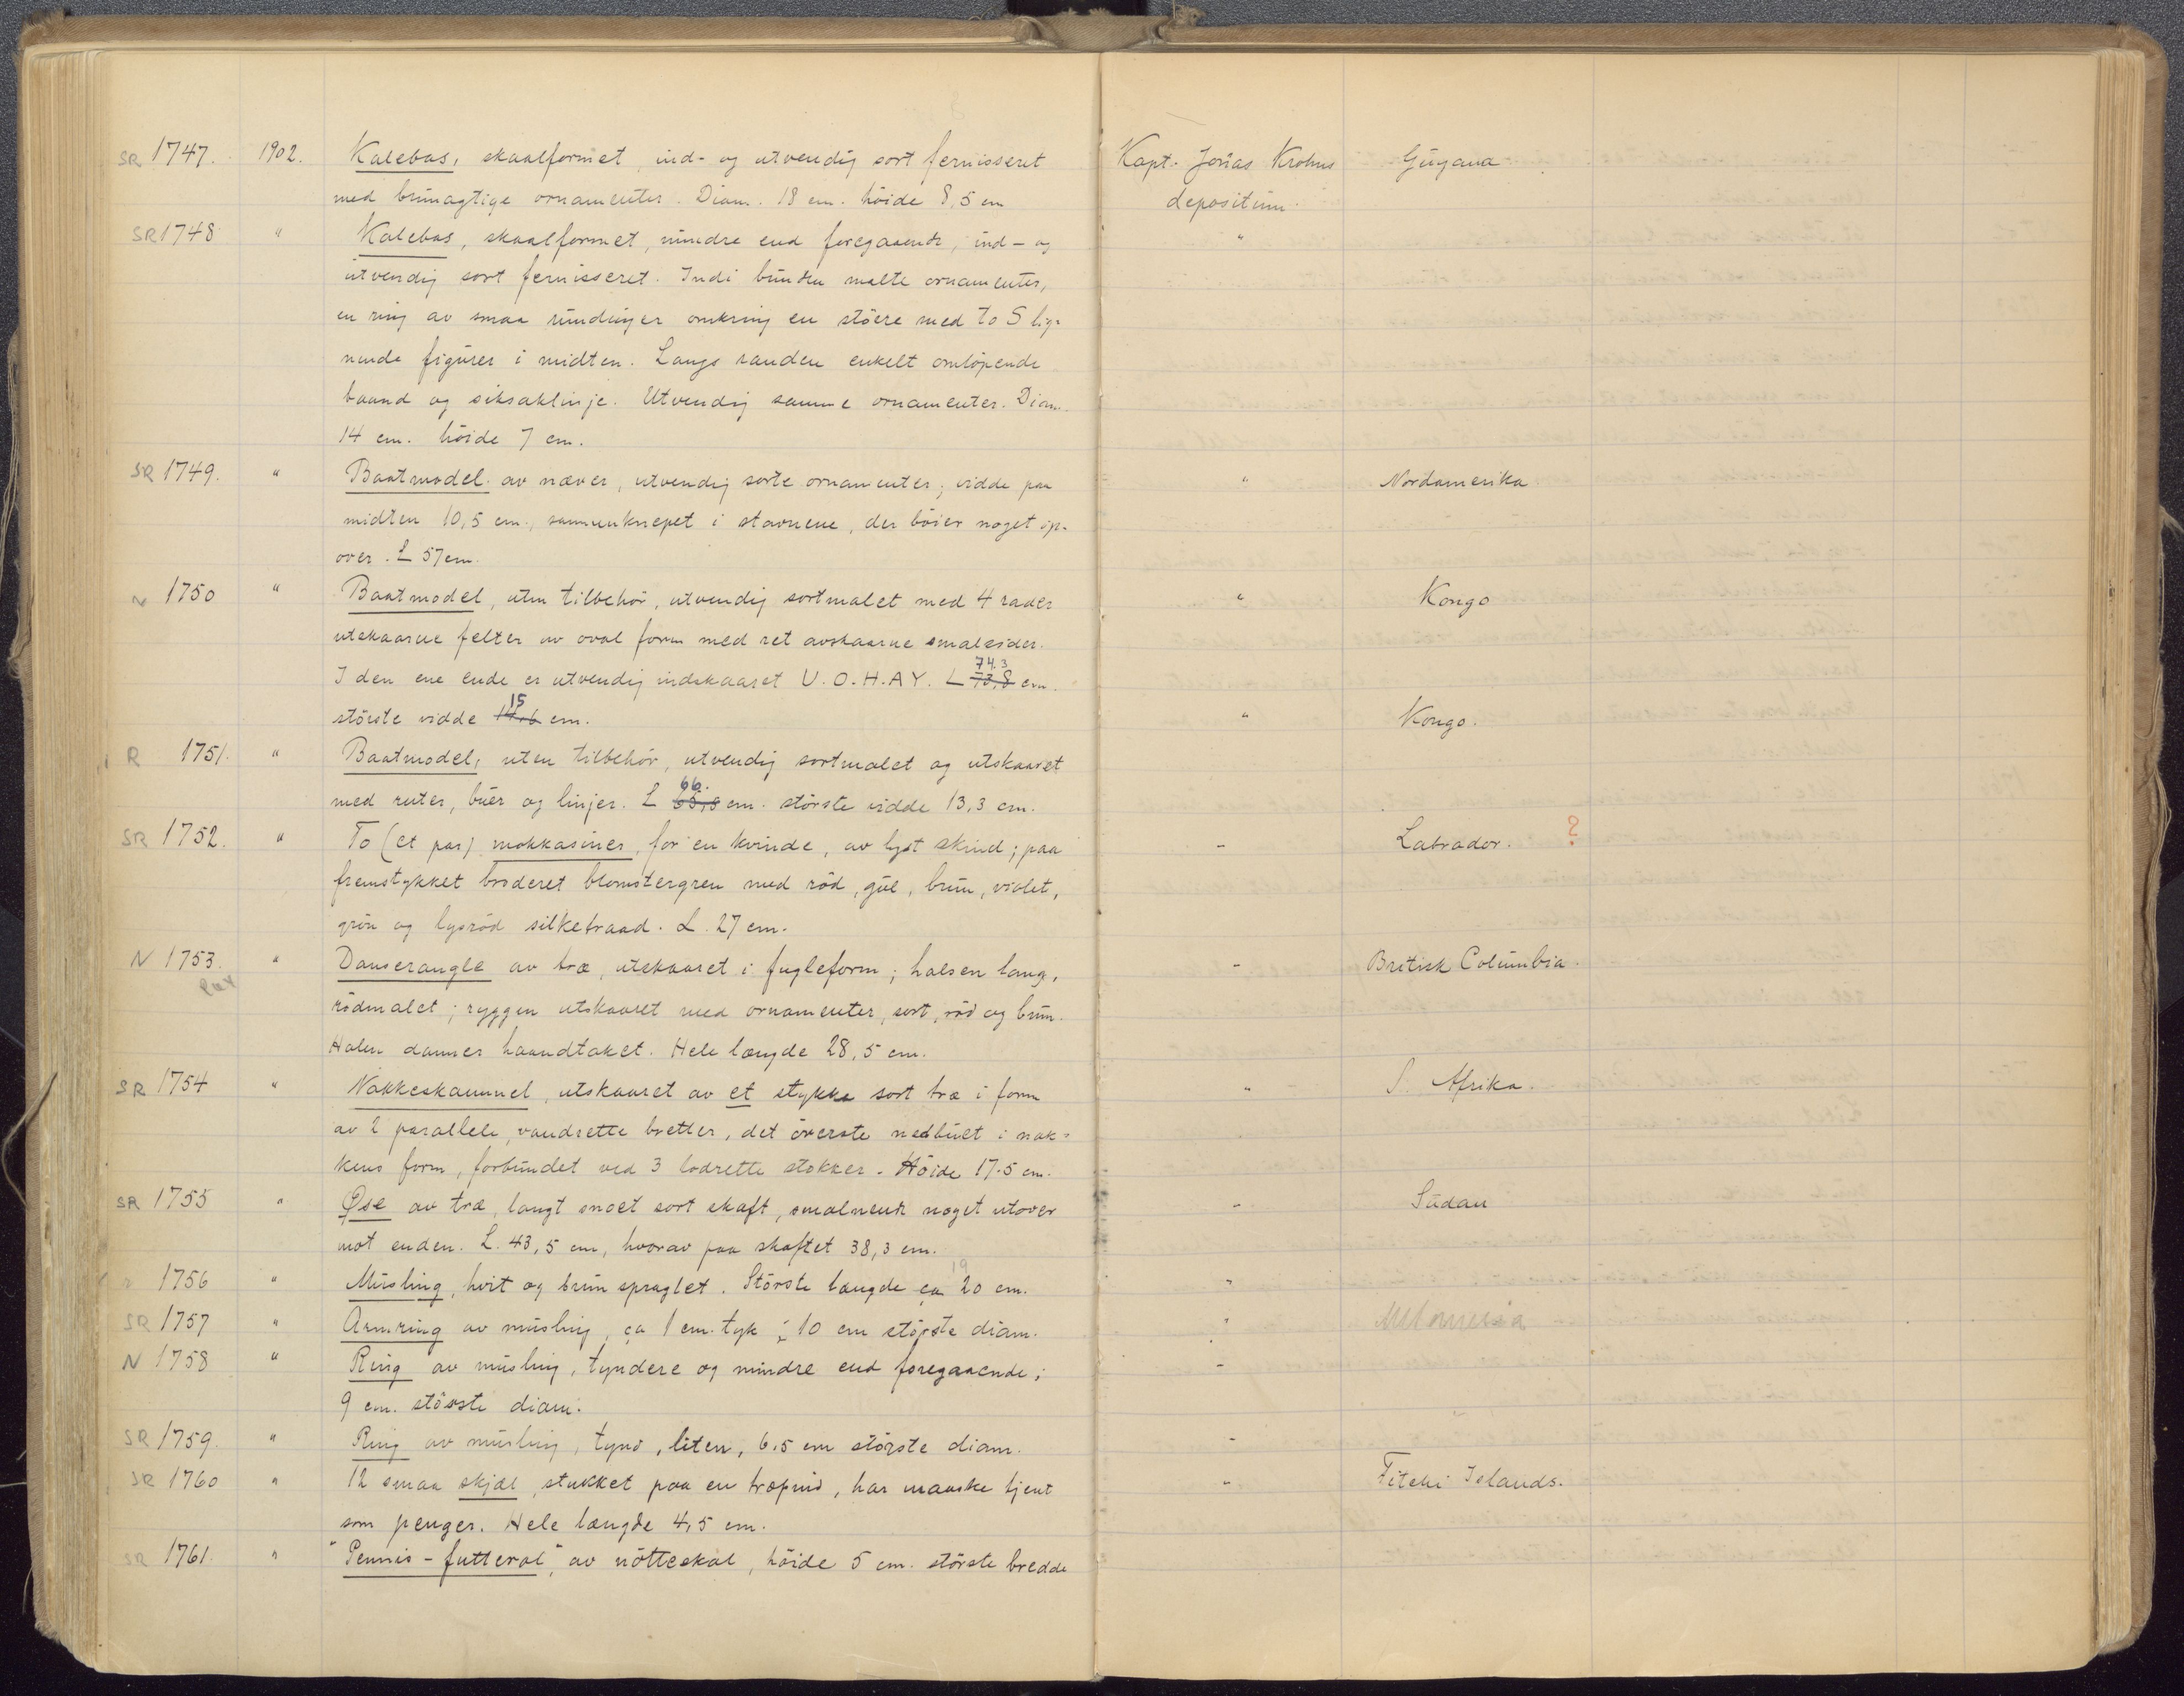 SR 1747. 1902. Kalebas, skaalformet, ind- og utvendig sort fernisseret Kapt. Jonas Krohns Guyana
med brunagtige ornamenter. Diam. 18 cm. høide 8,5 cm depositum.
SR 1748 " Kalebas, skaalformet, mindre end foregaaende, ind- og "
utvendig sort fernisseret. Indi bunden malte ornamenter,
en ring av smaa rundinger omkring en større med to S lig-
nende figurer i midten. Langs randen enkelt omløpende
baand og siksaklinje. Utvendig samme ornamenter. Diam.
14 cm. høide 7 cm.
SR 1749. " Baatmodel av næver, utvendig sorte ornamenter; vidde paa " Nordamerika.
midten 10,5 cm., sammenknepet i stavnene, der bøier noget op-
over. L 57 cm.
N 1750 " Baatmodel, uten tilbehør, utvendig sortmalet med 4 rader " Kongo
utskaarne felter av oval form med ret avskaarne smalsider.
74.3
I den ene ende er utvendig indskaaret U.O.H.AY. L 73,8 cm.
15
største vidde 14.6 cm. " Kongo.
R 1751. " Baatmodel, uten tilbehør, utvendig sortmalet og utskaaret
66.
med ruter, buer og linjer. L 65,8 cm. største vidde 13,3 cm.
SR 1752. " To (et par) mokkasiner, for en kvinde, av lyst skind; paa " Labrador. ?
fremstykket broderet blomstergren med rød, gul, brun, violet,
grøn og lysrød silketraad. L. 27 cm.
N 1753. " Danserangle av træ, utskaaret i fugleform; halsen lang, " Britisk Columbia.
rødmalet; ryggen utskaaret med ornamenter, sort, rød og brun.
Halen danner haandtaket. Hele længde 28,5 cm.
SR 1754 " Nakkeskammel, utskaaret av et stykke sort træ i form " S. Afrika.
av 2 parallele, vandrette bretter, det øverste nedbuet i nak-
kens form, forbundet ved 3 lodrette stokker. Høide 17.5 cm.
SR 1755 " Øse av træ, langt snoet sort skaft, smalnende noget utover " Sudan
mot enden. L. 43,5 cm, hvorav paa skaftet 38,3 cm.
19
1756 " Musling, hvit og brun spraglet. Største længde ca 20 cm. "
SR 1757 " Armring av musling, ca 1 cm. tyk; 10 cm største diam. " Melanesia
N 1758 " Ring av musling, tyndere og mindre end foregaaende; "
9 cm. største diam.
SR 1759. " Ring av musling, tynd, liten, 6,5 cm største diam. "
SR 1760 " 12 smaa skjæl, stukket paa en træpind, har maaske tjent " Fitchi Islands.
som penger. Hele længde 4,5 cm.
SR 1761. " "Pennis-futteral", av nötteskal, höide 5 cm. største bredde